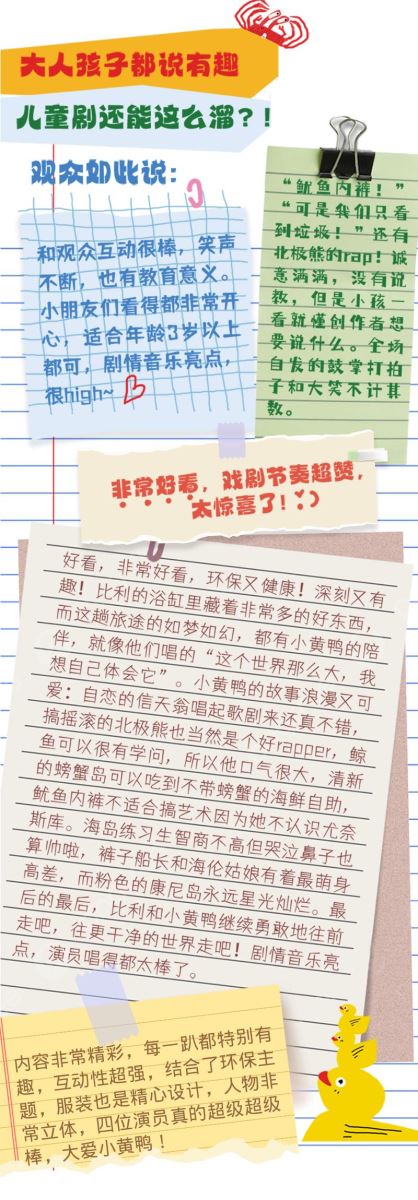 大人孩子都说有趣
儿童剧还能这么溜？！
观众如此说：
和观众互动很棒，笑声
不断，也有教育意义。
小朋友们看得都非常开
心，适合年龄3岁以上
都可，剧情音乐亮点，
很high~
“鱿鱼内裤！”
“可是我们只看
到垃圾！”还有
北极熊的rap！诚
意满满，没有说
教，但是小孩一
看就懂创作者想
要说什么。全场
自发的鼓掌打拍
子和大笑不计其
数。
非常好看，戏剧节奏超赞，
太惊喜了！:)
好看，非常好看，环保又健康！深刻又有
趣！比利的浴缸里藏着非常多的好东西，
而这趟旅途的如梦如幻，都有小黄鸭的陪
伴，就像他们唱的“这个世界那么大，我
想自己体会它”。小黄鸭的故事浪漫又可
爱：自恋的信天翁唱起歌剧来还真不错，
搞摇滚的北极熊也当然是个好rapper，鲸
鱼可以很有学问，所以他口气很大，清新
的螃蟹岛可以吃到不带螃蟹的海鲜自助，
鱿鱼内裤不适合搞艺术因为她不认识尤奈
斯库。海岛练习生智商不高但哭泣鼻子也
算帅啦，裤子船长和海伦姑娘有着最萌身
高差，而粉色的康尼岛永远星光灿烂。最
后的最后，比利和小黄鸭继续勇敢地往前
走吧，往更干净的世界走吧！剧情音乐亮
点，演员唱得都太棒了。
内容非常精彩，每一趴都特别有
趣，互动性超强，结合了环保主
题，服装也是精心设计，人物非
常立体，四位演员真的超级超级
棒，大爱小黄鸭！